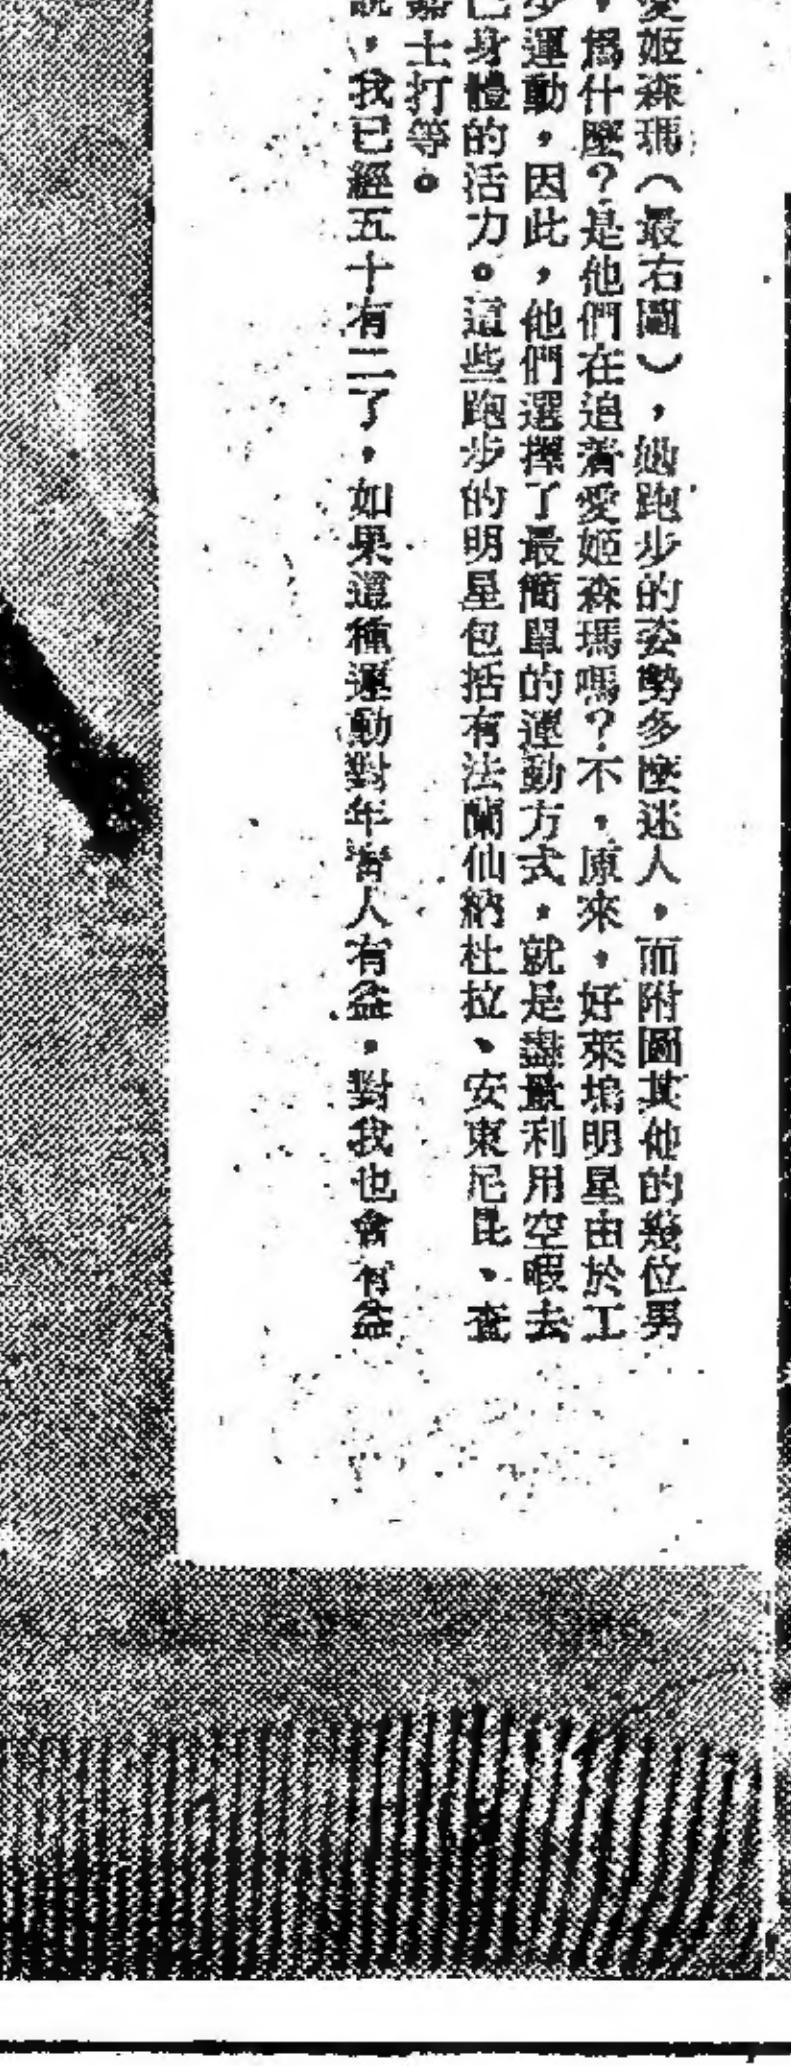 愛姬森瑪（最右圖），她跑步的姿勢多麼迷人，而附圖其他的幾位男
，爲什麼？是他們在追着愛姬森瑪嗎？不，原來，好萊塢明星由於工
少運動，因此，他們選擇了最簡單的運動方式，就是盡量利用空暇去
己身體的活力。這些跑步的明星包括有法蘭仙納杜拉、安東尼昆、查
士打等。
說，我已經五十有二了，如果這種運動對年靑人有益，對我也會有益